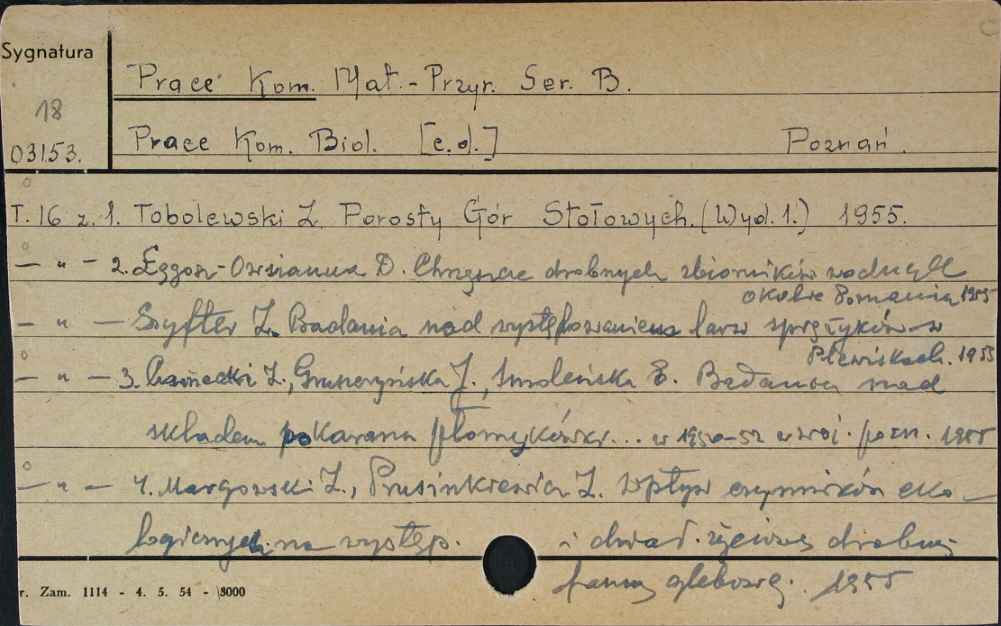 Sygnatura
Prace Kom. Mat.-Przyr. Ser. B.
18
03153.
Prace Kom. Biol. [c.d.] Poznań.
T. 16 z. 1. Tobolewski Z. Porosty Gór Stołowych. (Wyd. 1.) 1955.
— „ — 2. D. Chrząszcze drobnych zbiorników wodnych
okolic Poznania 1955
— „ — Szyfter Z. Badania nad występowaniem larw sprężyków w
Plewiskach. 1955
— „ — 3. Czarnecki Z., Gruszczyńska J., Smoleńska E. Badania nad
składem pokarmu płomykówki... w 1950-52 w woj. pozn. 1955
— „ — 4. Margowski Z., Prusinkiewicz Z. Wpływ czynników eko-
logicznych na występ. i działa. życiową drobnej
fauny glebowej. 1955
r. Zam. 1114 - 4. 5. 54 - 8000